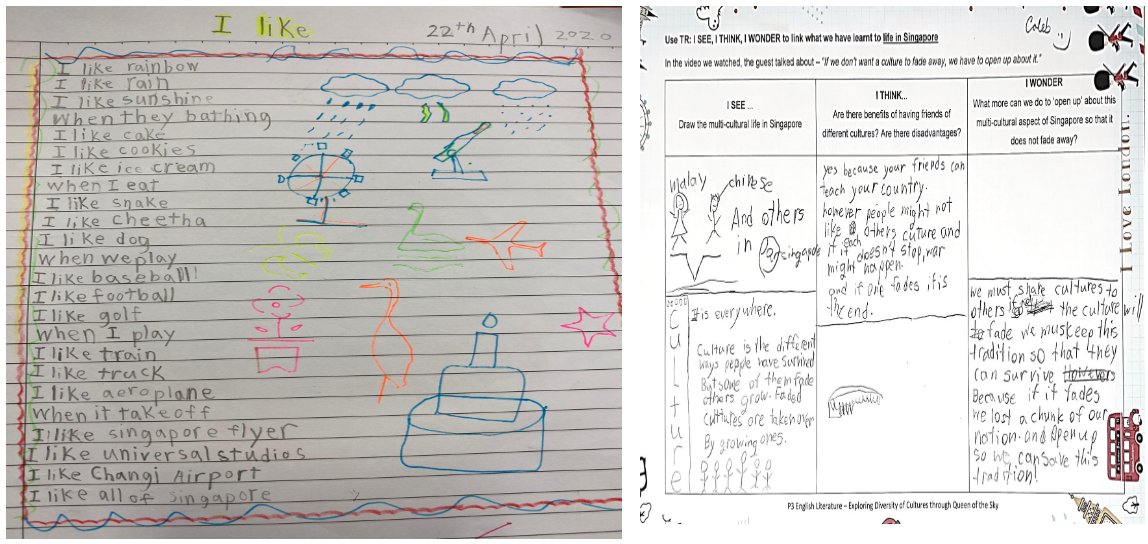 I like
22th April 2020
I like rainbow
I like rain
I like sunshine
When they bathing
I like cake
I like cookies
I like ice cream
when I eat
I like snake
I like cheetha
I like dog
when we play
I like baseball!
I like football
I like golf
when I play
I like train
I like truck
I like aeroplane
When it take off
I like singapore flyer
I like universal studios
I like Changi Airport
I like all of singapore
Caleb
Use TR: I SEE, I THINK, I WONDER to link what we have learnt to life in Singapore
In the video we watched, the guest talked about – "If we don't want a culture to fade away, we have to open up about it."
I SEE ...
Draw the multi-cultural life in Singapore
I THINK...
Are there benefits of having friends of
different cultures? Are there disadvantages?
I WONDER
What more can we do to 'open up' about this
multi-cultural aspect of Singapore so that it
does not fade away?
malay
chinese
And others
in singapore
yes because your friends can
teach your country.
however people might not
like others cuture and
if it doesn't stop, war
might happen.
and if one fades it is
the end.
Culture
It is everywhere.
Culture is the different
ways people have survived
But some of them fade
others grow. faded
cultures are taken over
By growing ones.
we must share cultures to
others if the culture will
fade we must keep this
tradition so that they
can survive
Because if it fades
we lost a chunk of our
nation. and open up
so we can save this
tradition!
I Love London.
P3 English Literature – Exploring Diversity of Cultures through Queen of the Sky